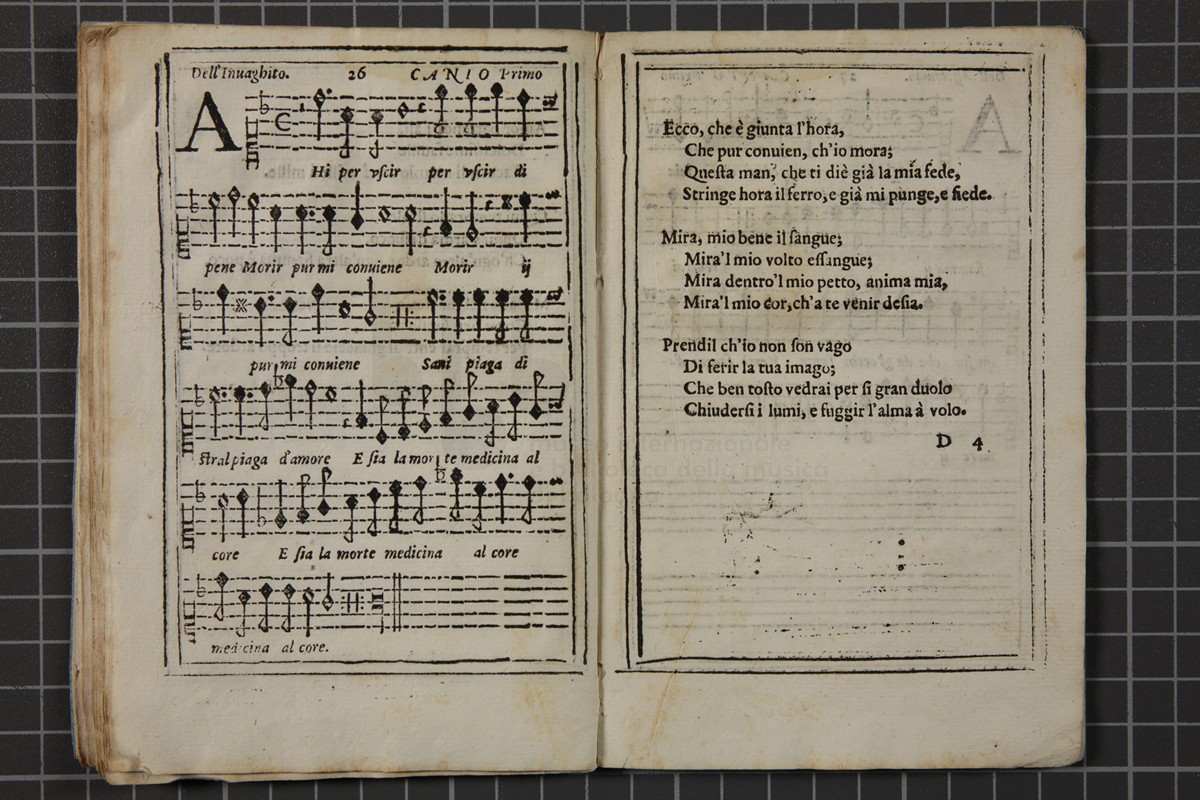 Dell'Inuaghito. 26 CANTO Primo
A
Hi per vscir per vscir di
pene Morir pur mi conuiene Morir ij
pur mi conuiene Sani piaga di
stral piaga d'amore E sia la morte medicina al
core E sia la morte medicina al core
medicina al core.
Ecco, che è giunta l'hora,
Che pur conuien, ch'io mora;
Questa man, che ti diè già la mia fede,
Stringe hora il ferro, e già mi punge, e fiede.
Mira, mio bene il sangue;
Mira'l mio volto essangue;
Mira dentro'l mio petto, anima mia,
Mira'l mio cor, ch'a te venir desia.
Prendil ch'io non son vago
Di ferir la tua imago;
Che ben tosto vedrai per si gran duolo
Chiudersi i lumi, e fuggir l'alma à volo.
D 4
internazionale
della musica